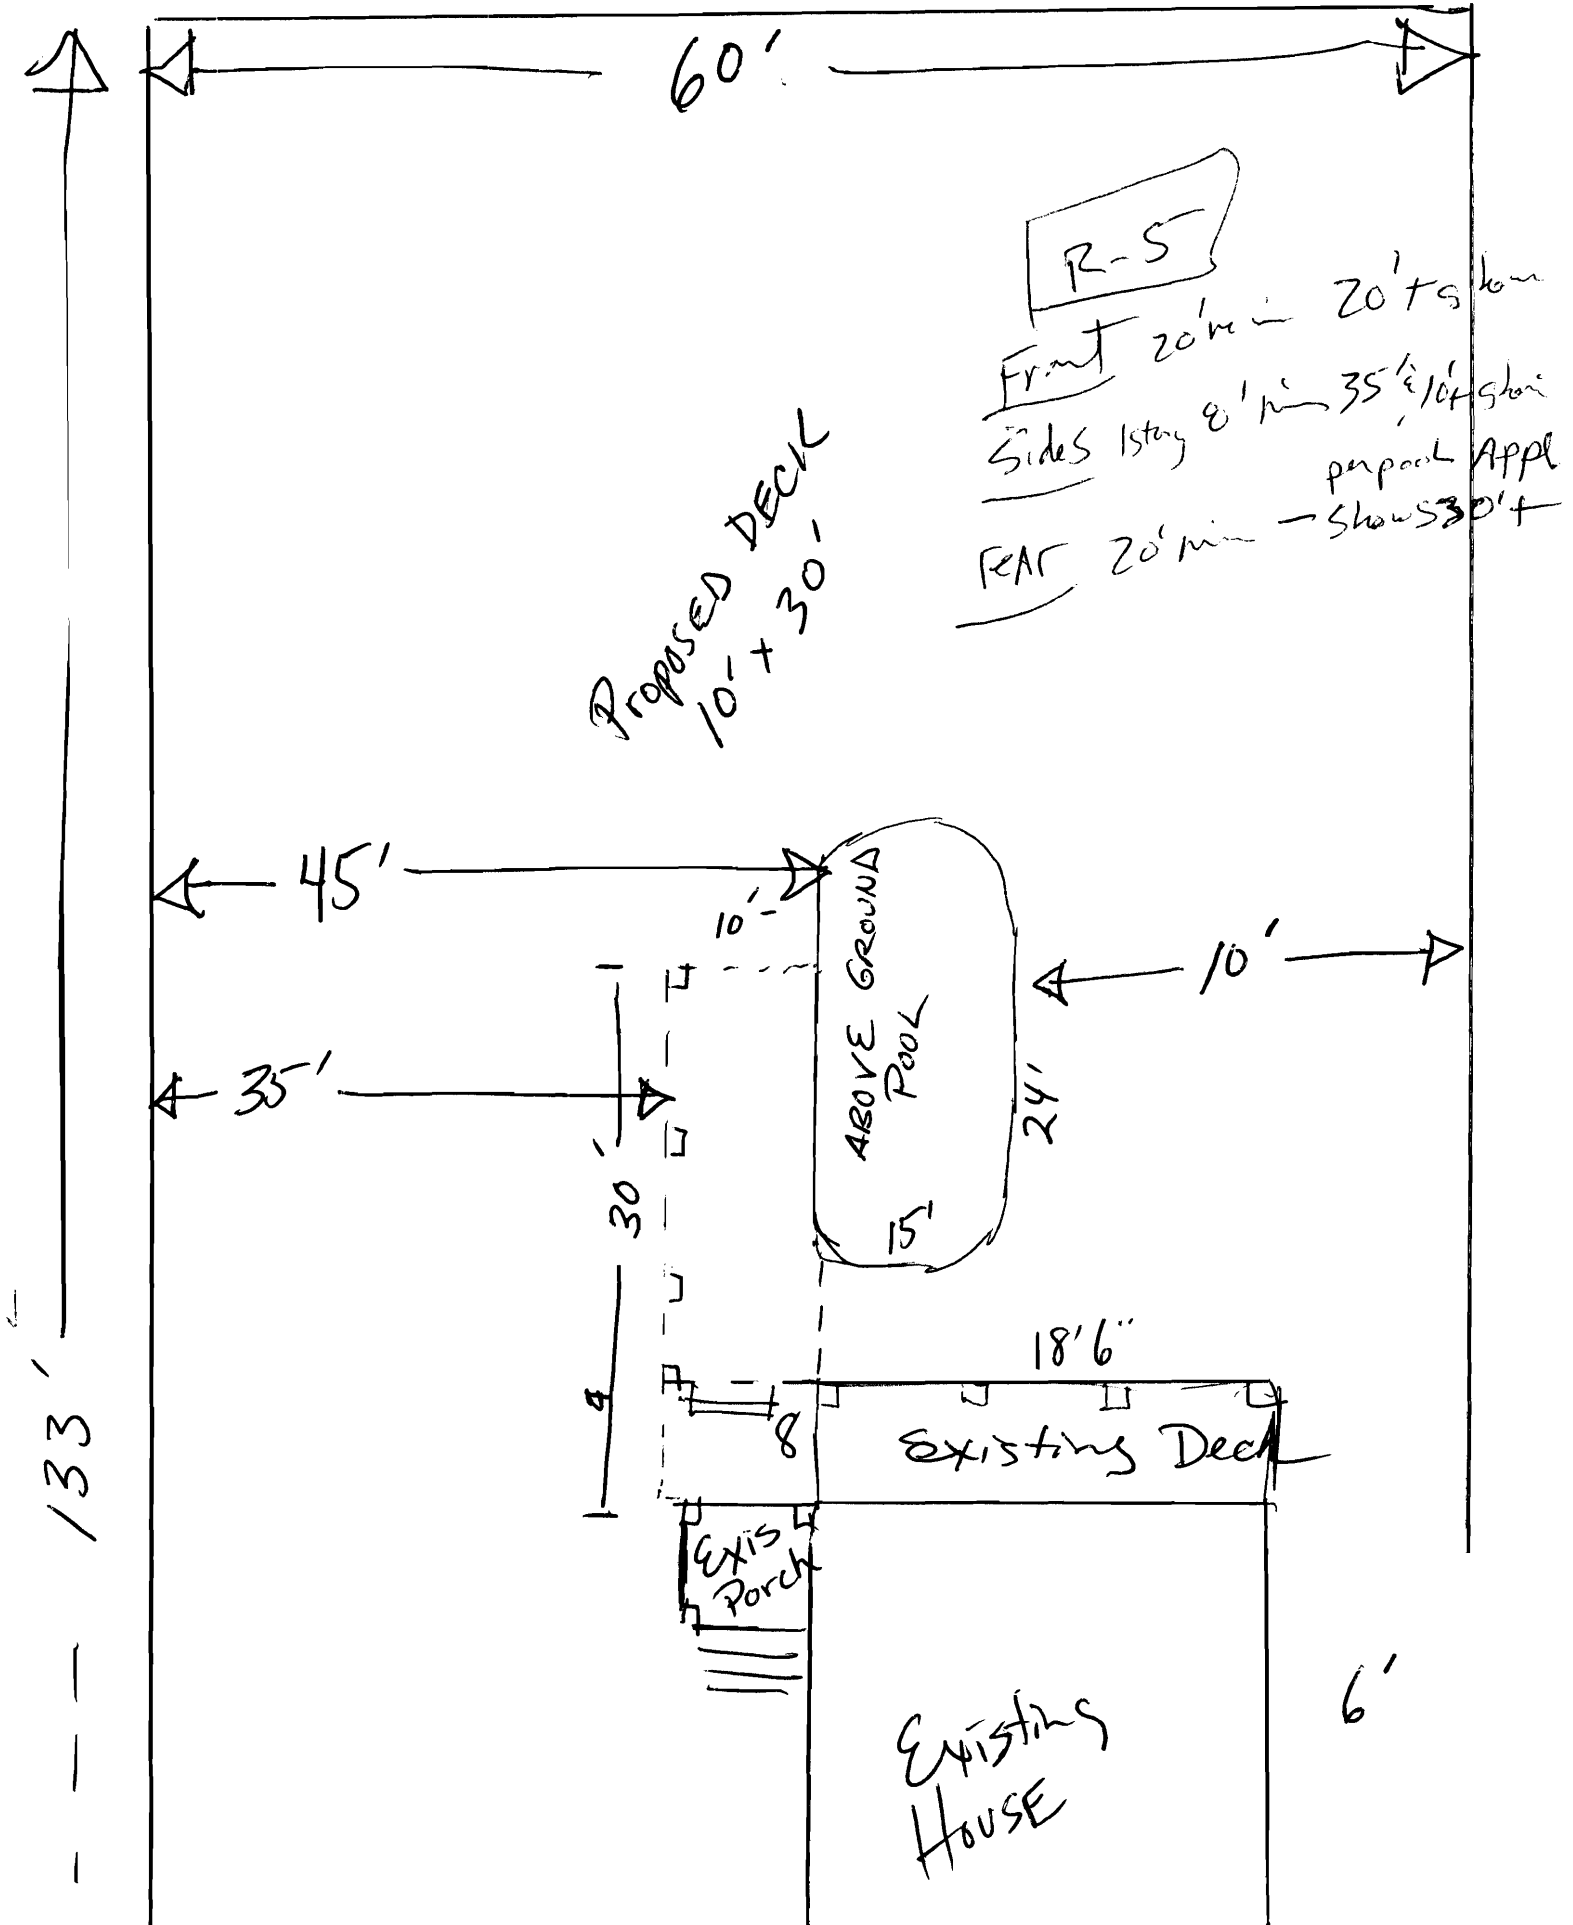 60'
R-5
Front 20' min 20'+ shown
Sides 1story 8' min 35' & 10'+ shown
per pool Appl
rear 20' min - shows 30'+
PROPOSED DECK
10' + 30'
45'
10'-
ABOVE GROUND
POOL
10'
35'
24'
30'
15'
18'6"
133'
8
Existing Deck
Exis
Porch
6'
Existing
HOUSE